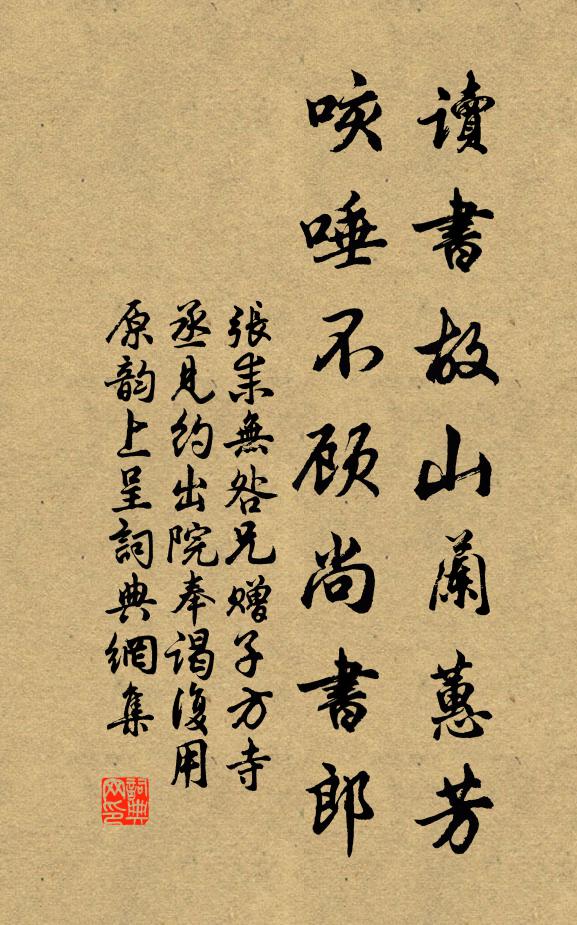 讀書故山蘭蕙芳
咳唾不顾尚書郎
張耒無咎兄赠子方寺
丞見約出院奉谒復用
原韵上呈詞典網集
詞典
网印